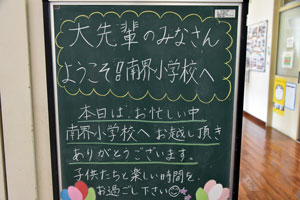 大先輩のみなさん
ようこそ!!南界小学校へ
本日は、お忙しい中
南界小学校へお越し頂き
ありがとうございます。
子供たちと楽しい時間を
お過ごし下さい☺☆